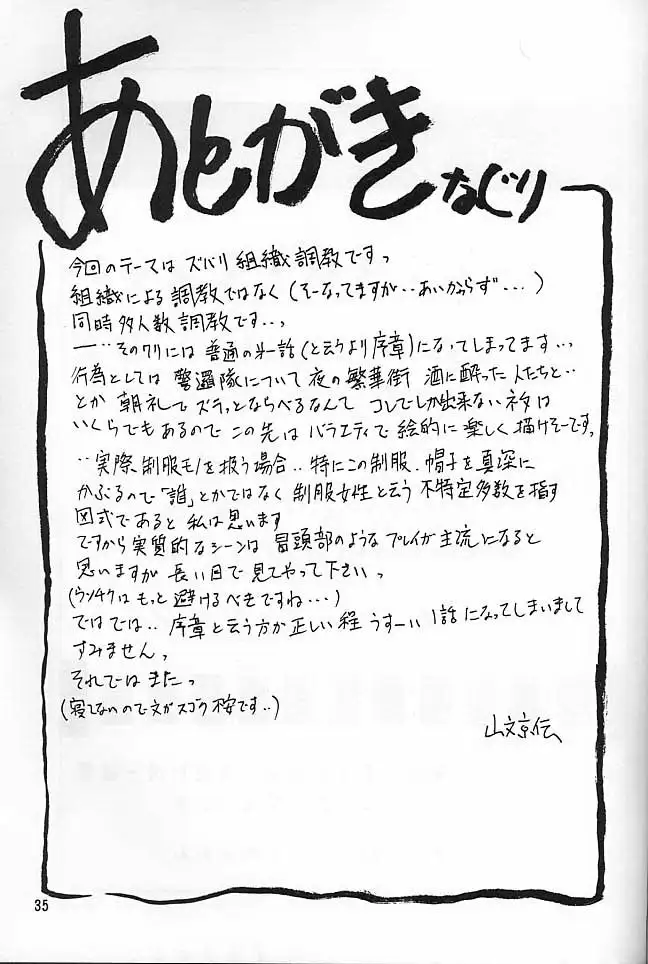 あとがき なぐり
今回のテーマは ズバリ 組織調教ですっ
組織による 調教ではなく (そーなってますが‥あいかわらず‥‥)
同時多人数調教です‥っ
―‥そのワリには 普通の第一話(と云うより序章)になってしまってます‥っ
行為としては 警邏隊について 夜の繁華街 酒に酔った人たちと‥
とか 朝礼で ズラッとならべるなんて コレでしか出来ないネタは
いくらでもあるので この先は バラエティで 絵的に 楽しく描けそーですっ
‥実際、制服モノを扱う場合‥特にこの制服、帽子を真深に
かぶるので「誰」とかではなく 制服女性と云う 不特定多数を指す
図式であると 私は思います
ですから実質的なシーンは 冒頭部のような プレイが主流になると
思いますが 長い目で見てやって下さいっ
(ウンチクは もっと 避けるべきですね‥‥)
ではでは‥ 序章と云う方が正しい程 うすーい 1話になってしまいまして
すみませんっ
それではまたっ
(寝てないので文がスゴク 変です‥)
山文京伝
35